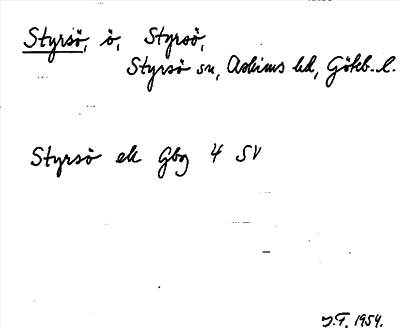 Styrsö, ö, Styrsö,
Styrsö sn, Askims hd, Göteb. l.
Styrsö ek Gbg 4 SV
J.F. 1954.